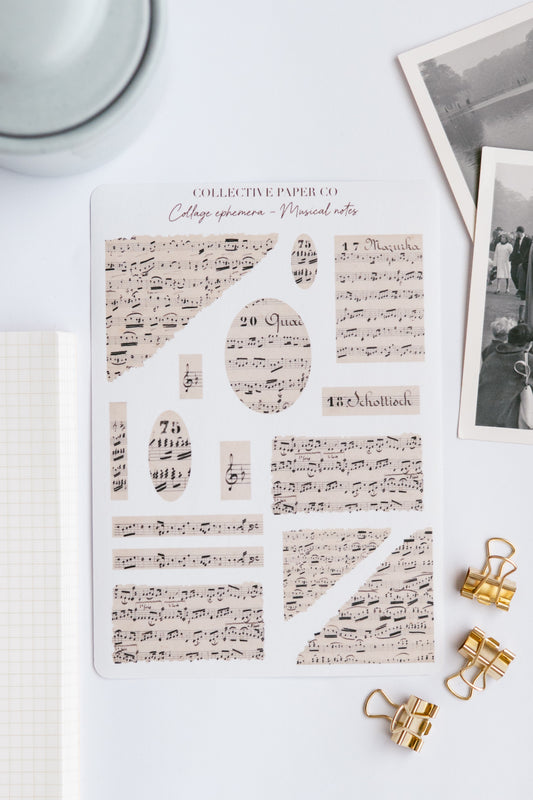 COLLECTIVE PAPER CO
Collage ephemera - Musical notes
75
17 Mazurka
20 Qua
18 Schottisch
75